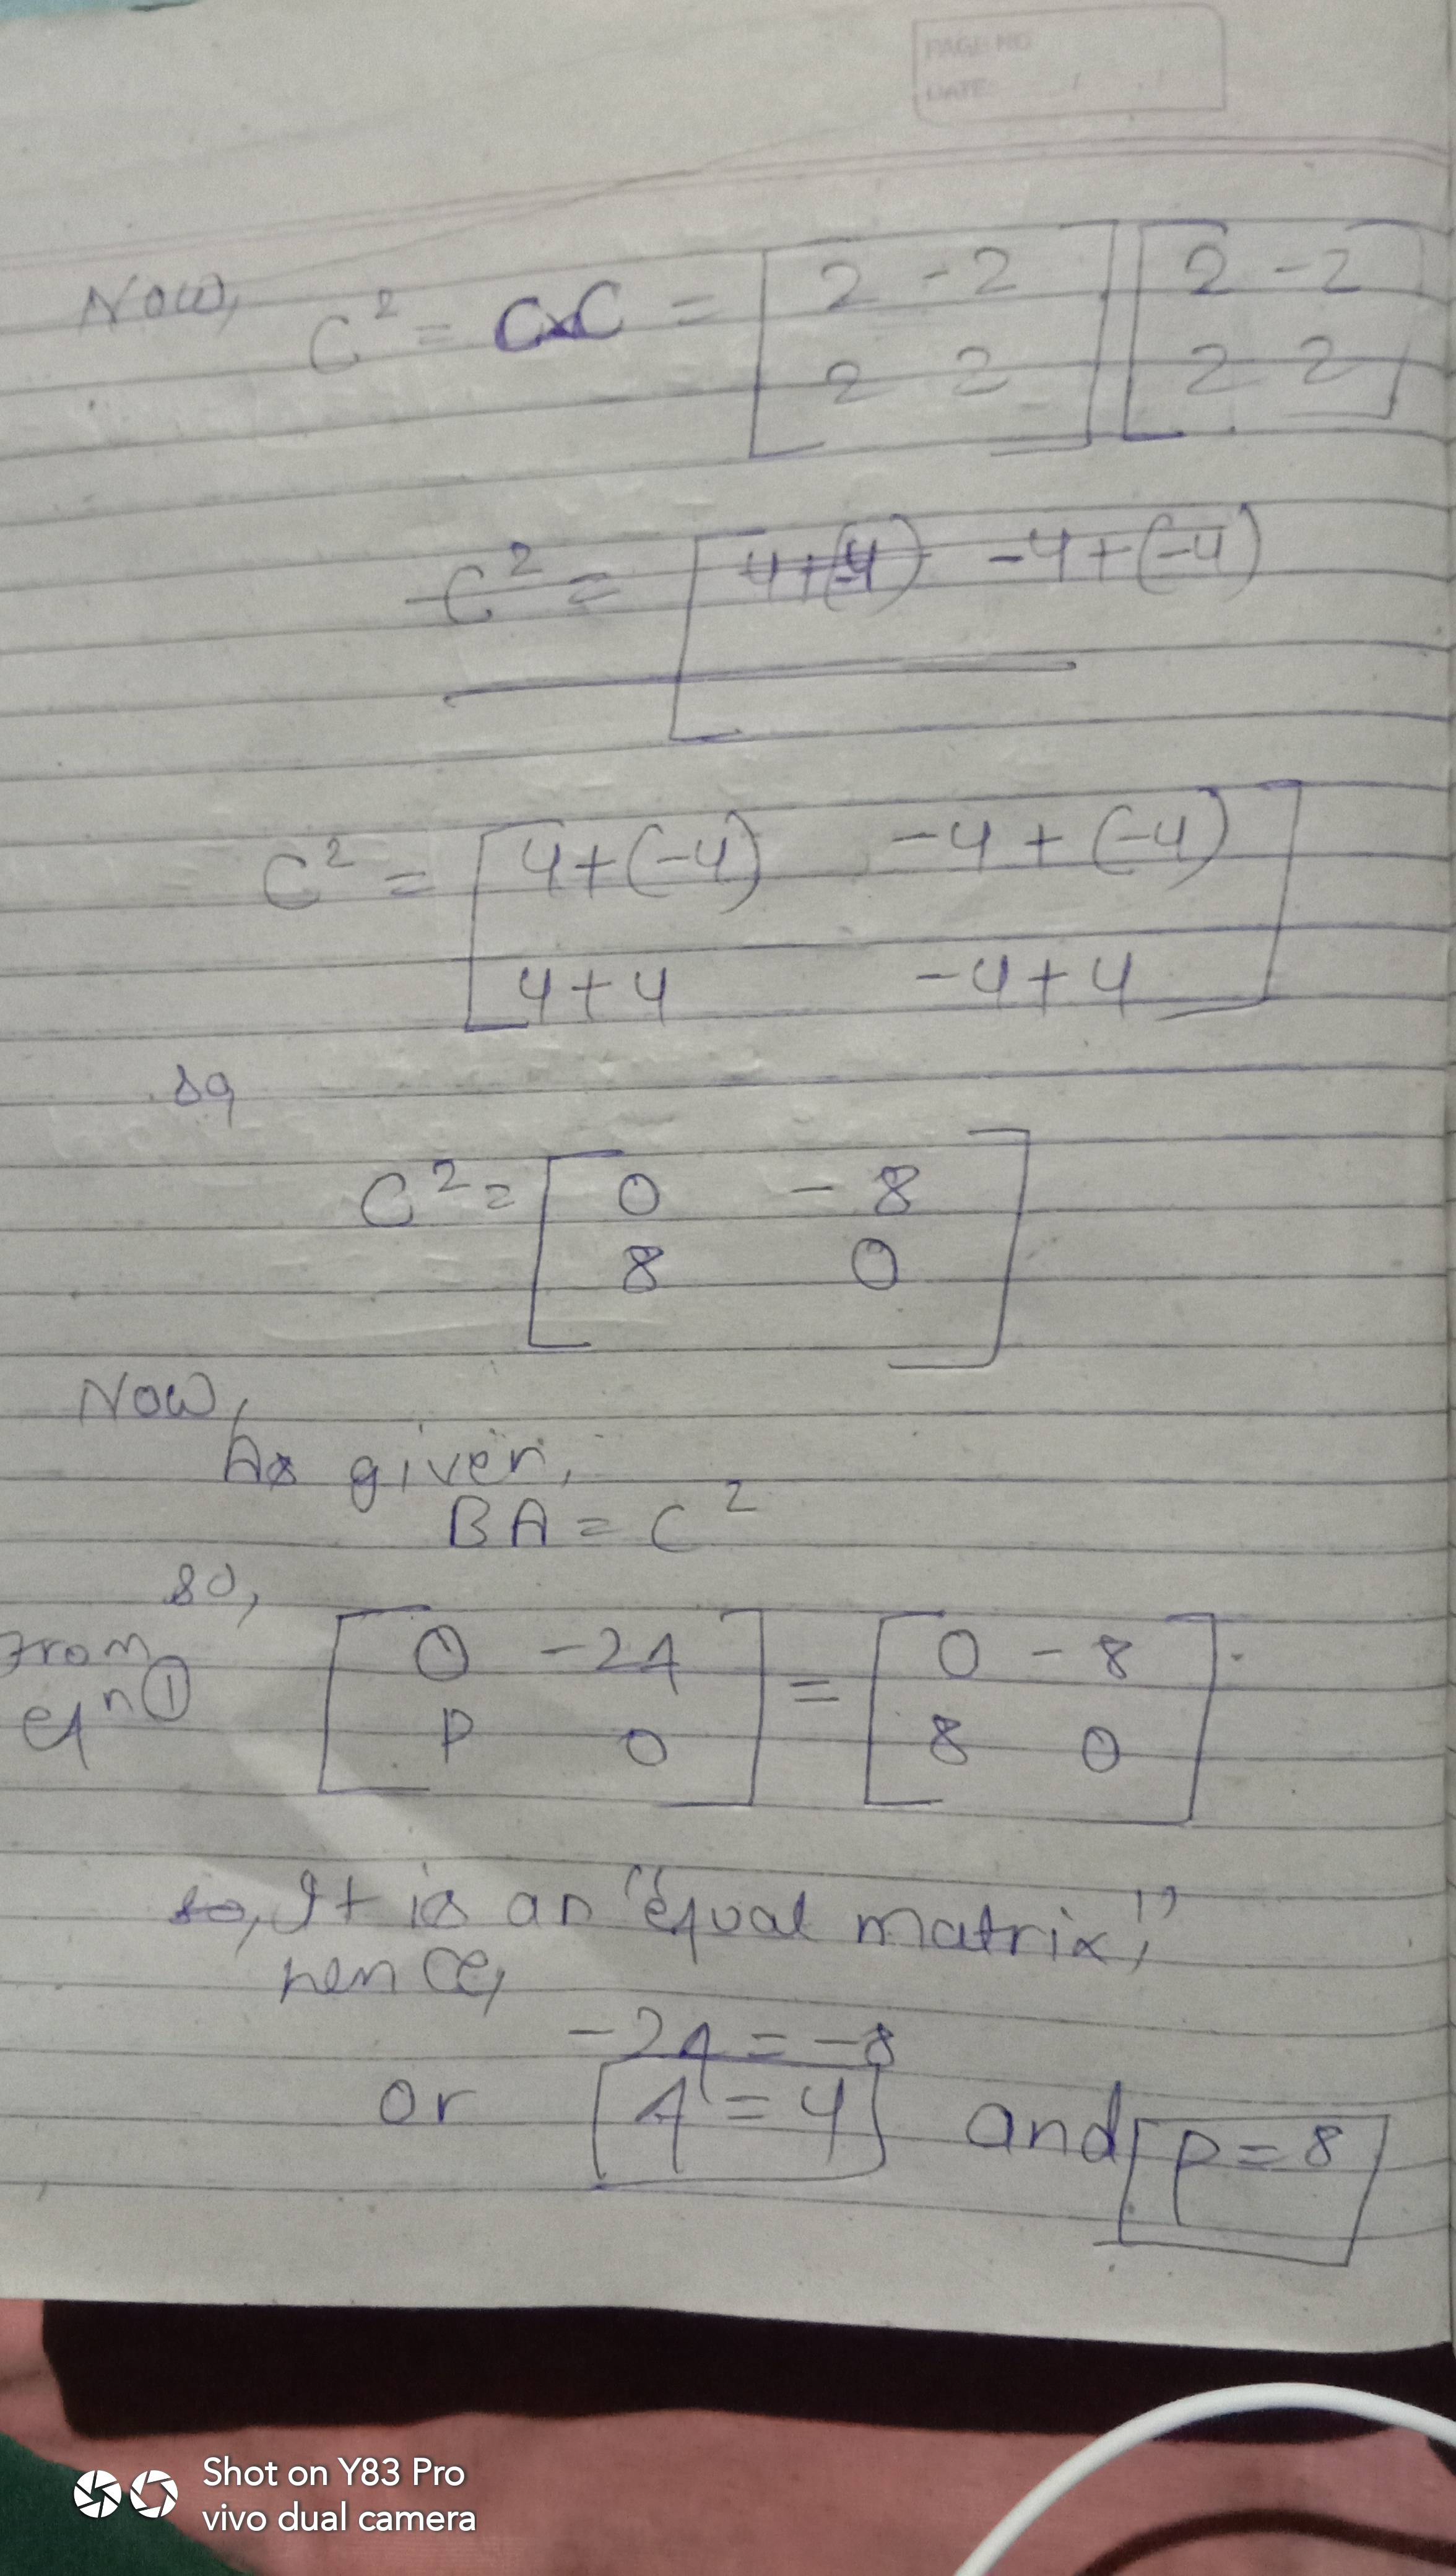 PAGE NO
DATE: / /
Now, C² = C×C = [2 -2] [2 -2]
[2 2] [2 2]
C² = [4+(-4) -4+(-4)
C² = [4+(-4) -4+(-4)]
[4+4 -4+4]
so
C² = [0 -8]
[8 0]
Now,
As given,
BA = C²
so,
From eqⁿ① [0 -2q] = [0 -8].
[p 0] [8 0]
so, It is an "equal matrix,"
hence,
-2q = -8
or [q = 4] and [p = 8]
Shot on Y83 Pro
vivo dual camera